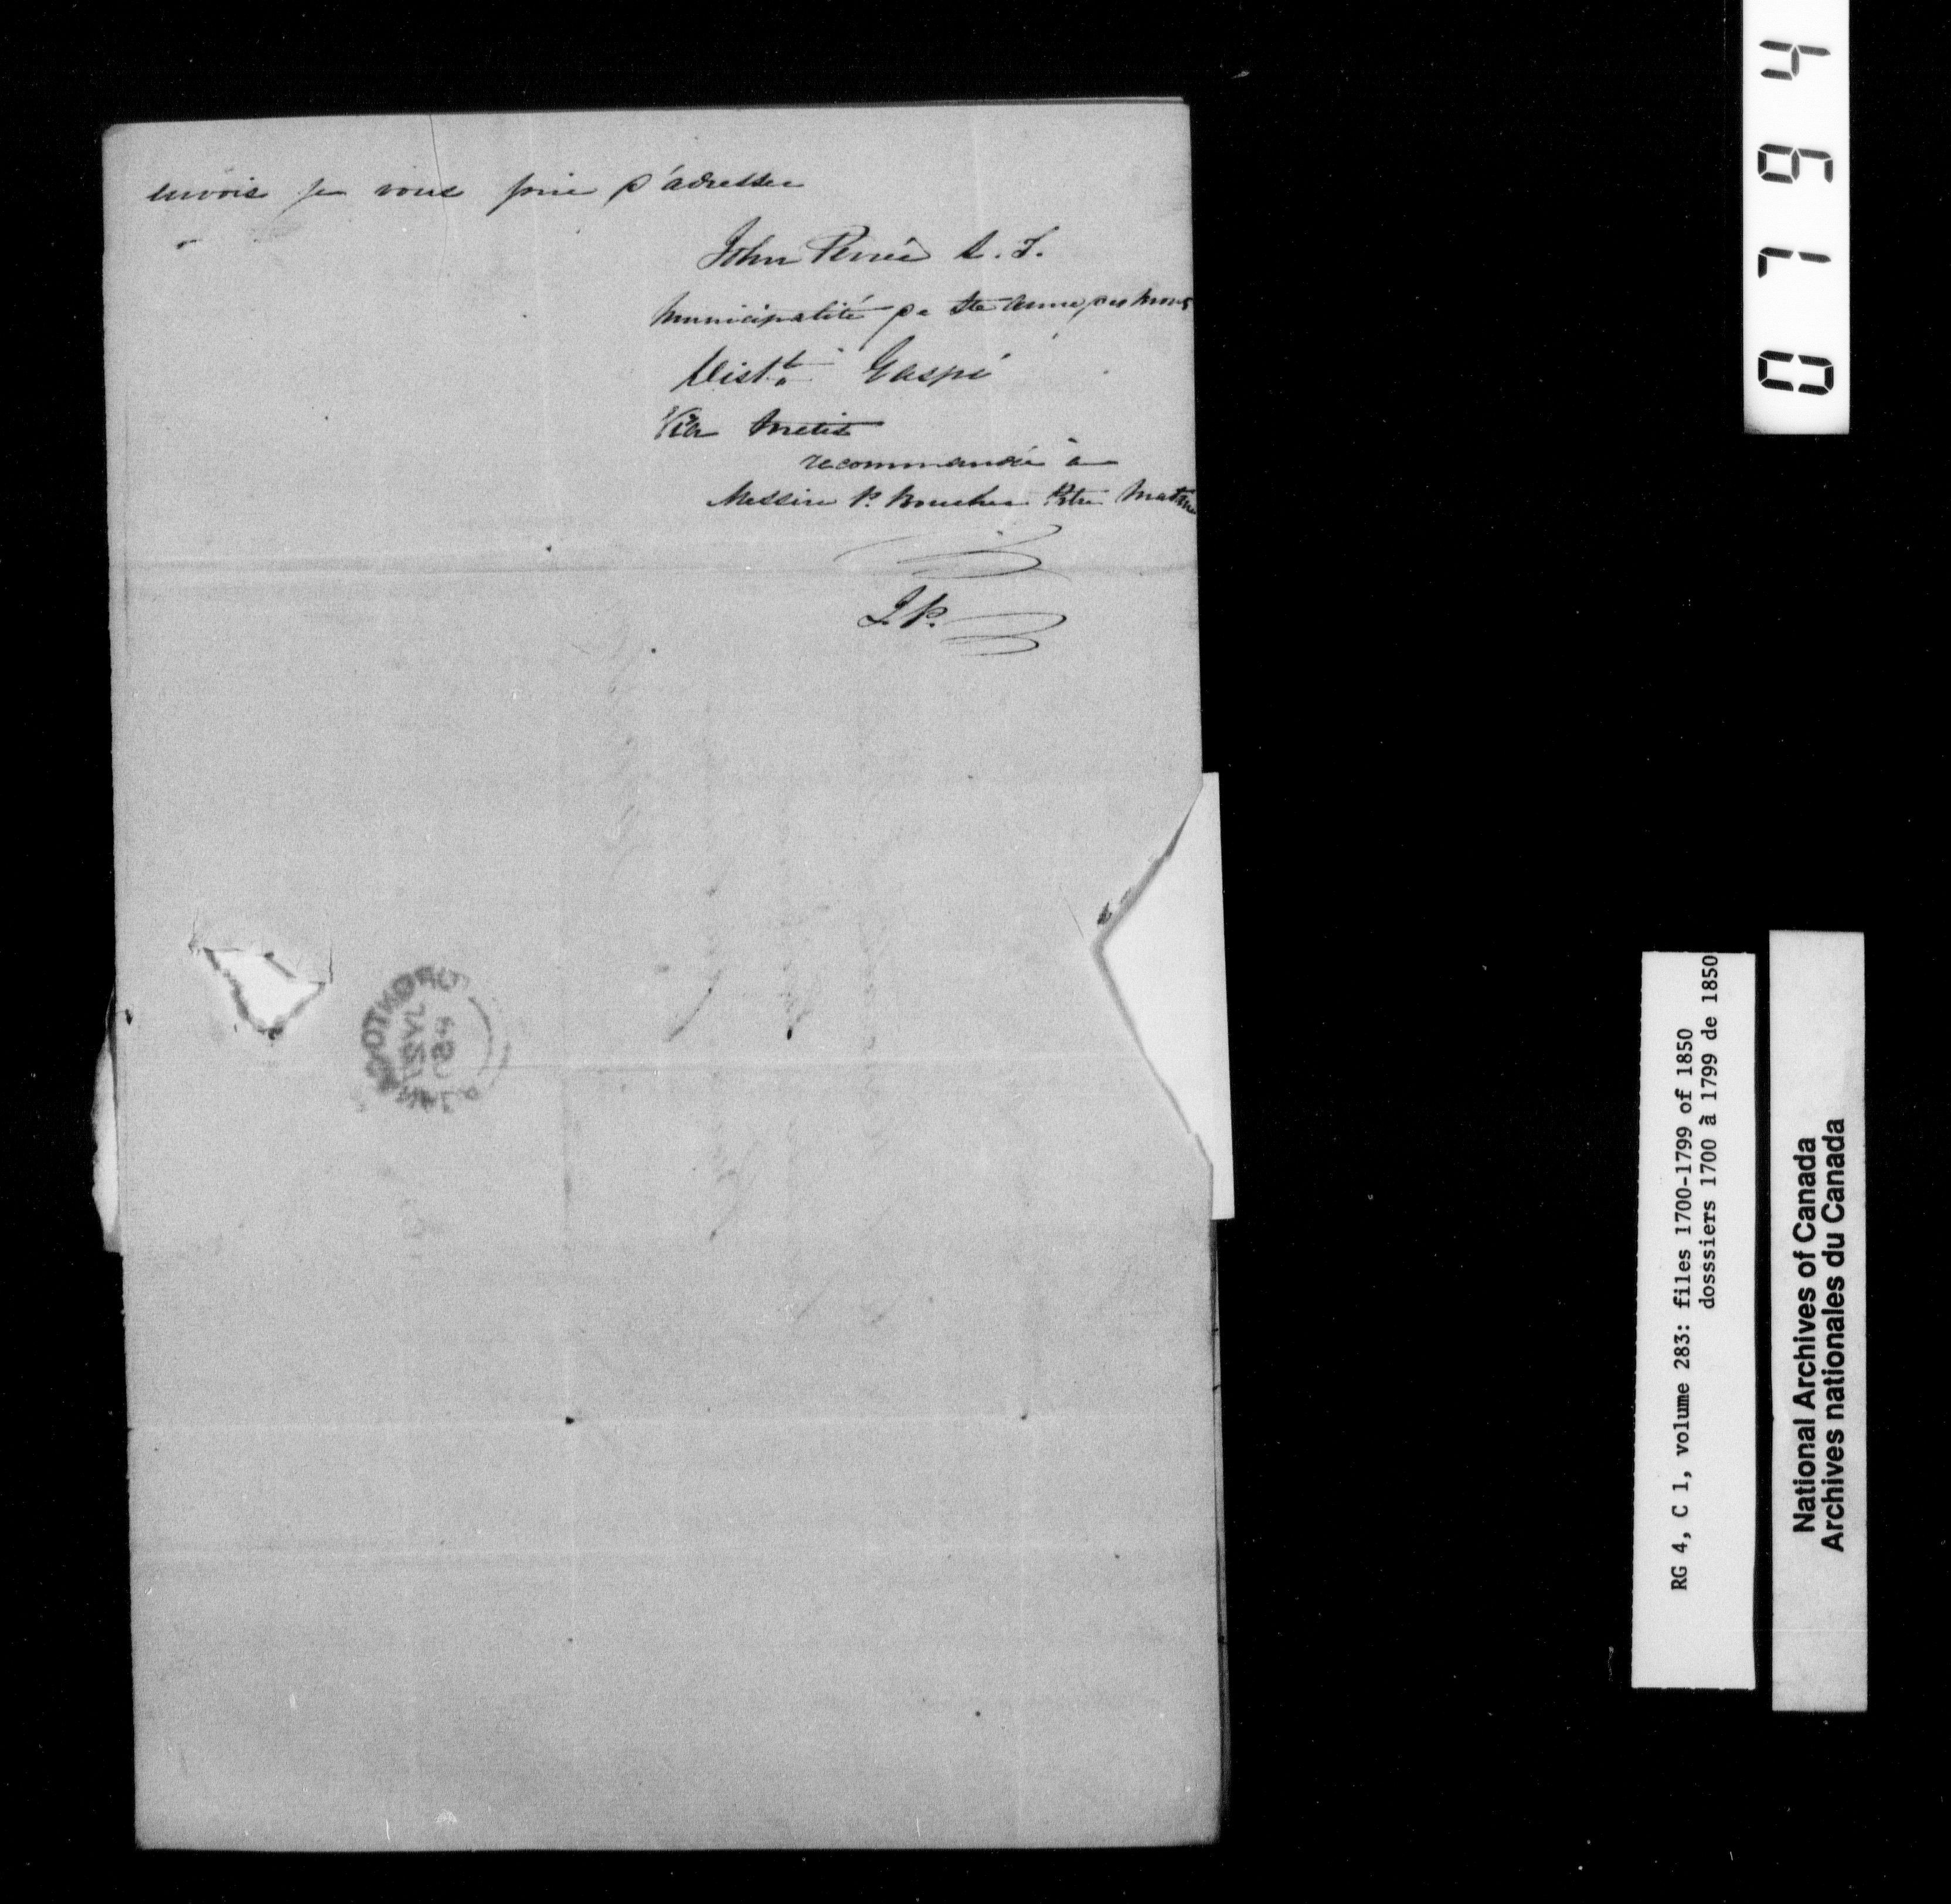 envois je vous prie d'adresser
John Perrée S. T.
Municipalité de Ste Anne des Monts
Distt. Gaspé
Via Metis
recommandée à
Messire P. Boucher Ptre Matane
J. P.
0794
RG 4, C 1, volume 283: files 1700-1799 of 1850
dosssiers 1700 à 1799 de 1850
National Archives of Canada
Archives nationales du Canada